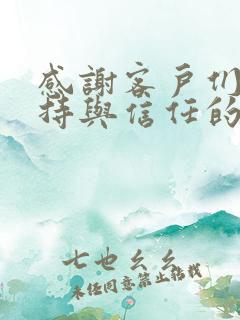 感謝客戶们
持與信任的
七也幺幺
未任同意禁止搭找